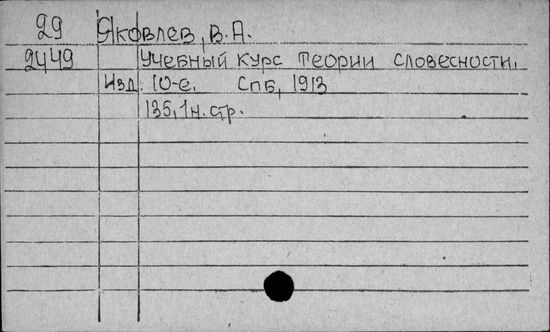 29 Яковлев, В.А.
2449 Учебный курс теории словесности.
Изд. 10-е. Спб, 1913
135,1н.стр.